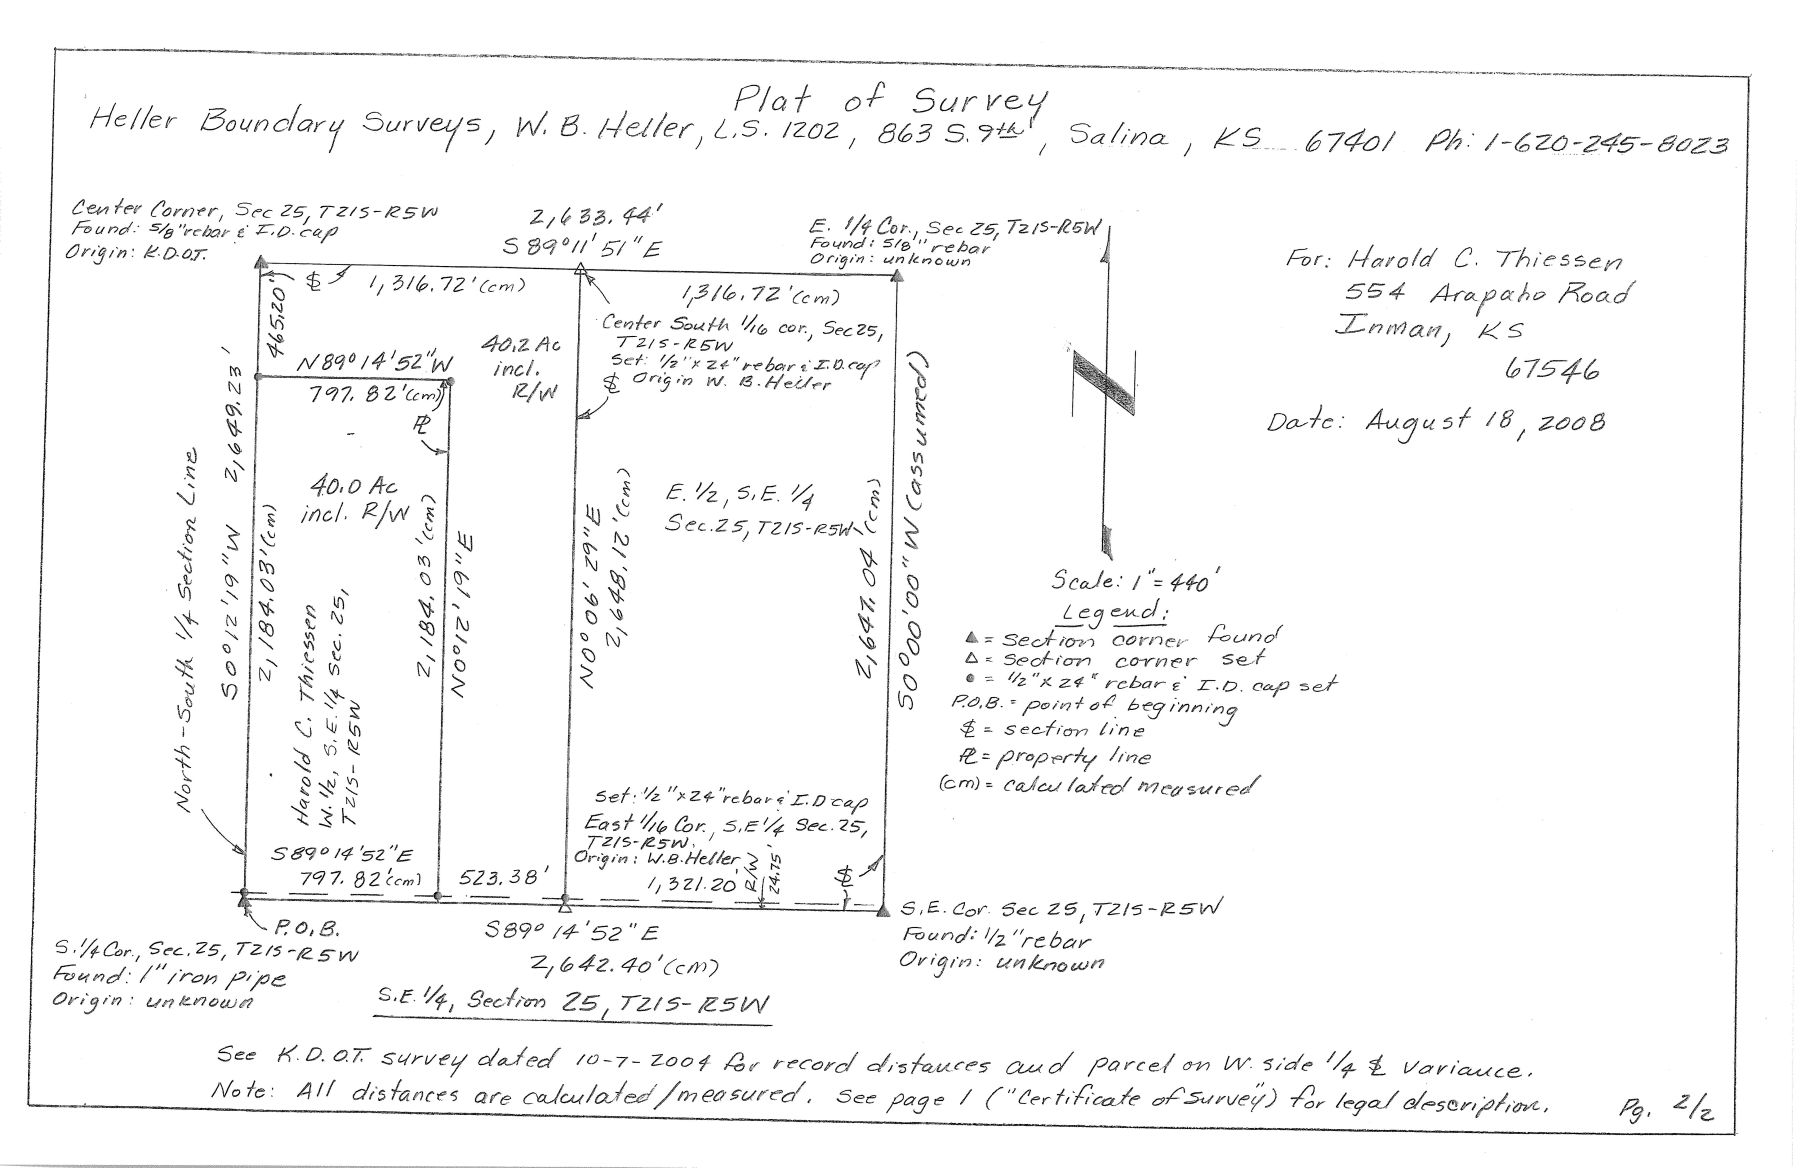 Plat of Survey
Heller Boundary Surveys, W. B. Heller, L.S. 1202, 863 S. 9th, Salina, KS 67401 Ph: 1-620-245-8023
Center Corner, Sec 25, T21S-R5W
Found: 5/8" rebar & I.D. cap
Origin: K.D.O.T.
2,633.44'
S 89° 11' 51" E
E. 1/4 Cor., Sec 25, T21S-R5W
Found: 5/8" rebar
Origin: unknown
For: Harold C. Thiessen
554 Arapaho Road
Inman, KS
67546
Date: August 18, 2008
465.20'
1,316.72' (cm)
1,316.72' (cm)
Center South 1/16 cor., Sec 25,
T21S-R5W
Set: 1/2" x 24" rebar & I.D. cap
Origin W. B. Heller
N 89° 14' 52" W
797.82' (cm)
40.2 Ac
incl.
R/W
40.0 Ac
incl. R/W
E. 1/2, S.E. 1/4
Sec. 25, T21S-R5W
North-South 1/4 Section Line
S0° 12' 19" W 2,649.23'
2,184.03' (cm)
Harold C. Thiessen
W. 1/2, S.E. 1/4 Sec. 25,
T21S-R5W
2,184.03' (cm)
N0° 12' 19" E
N0° 06' 29" E
2,648.12' (cm)
2,647.04' (cm)
S0° 00' 00" W (assumed)
Scale: 1" = 440'
Legend:
▲ = section corner found
△ = section corner set
● = 1/2" x 24" rebar & I.D. cap set
P.O.B. = point of beginning
= section line
= property line
(cm) = calculated measured
Set: 1/2" x 24" rebar & I.D cap
East 1/16 Cor., S.E 1/4 Sec. 25,
T21S-R5W.
Origin: W.B. Heller
R/W
24.75'
S89° 14' 52" E
797.82' (cm)
523.38'
1,321.20'
P.O.B.
S. 1/4 Cor., Sec. 25, T21S-R5W
Found: 1" iron pipe
Origin: unknown
S89° 14' 52" E
2,642.40' (cm)
S.E. Cor. Sec 25, T21S-R5W
Found: 1/2" rebar
Origin: unknown
S.E. 1/4, Section 25, T21S-R5W
See K.D.O.T. survey dated 10-7-2004 for record distances and parcel on W. side 1/4 variance.
Note: All distances are calculated/measured. See page 1 ("Certificate of Survey") for legal description.
Pg. 2/2